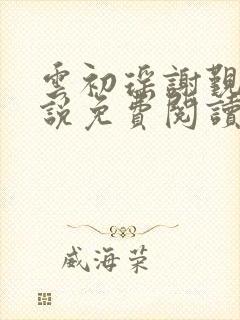 雲初瑤謝覲
說免費閱讀
威海荣